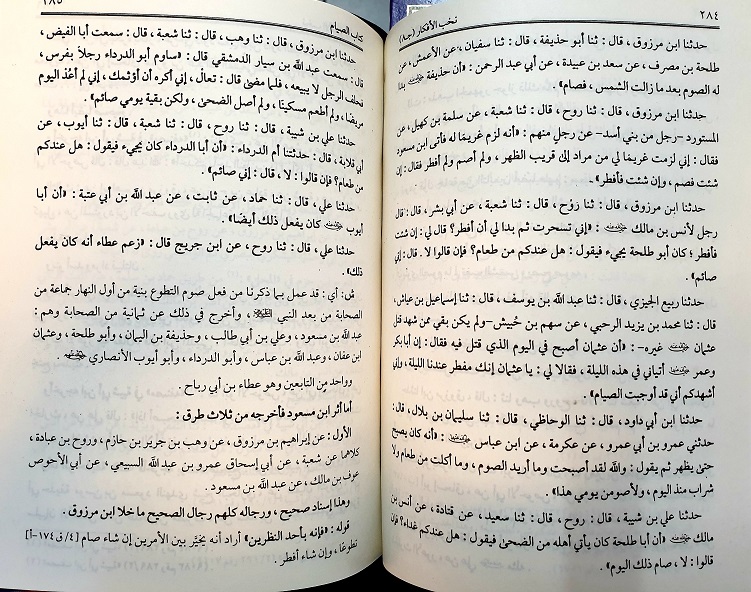 ٢٨٤
نخب الأفكار (جـ٨)
حدثنا ابن مرزوق ، قال : ثنا أبو حذيفة ، قال : ثنا سفيان ، عن الأعمش ، عن
طلحة بن مصرف ، عن سعد بن عبيدة ، عن أبي عبد الرحمن : «أن حذيفة بدا
له الصوم بعد ما زالت الشمس ، فصام» .
حدثنا ابن مرزوق ، قال : ثنا روح ، قال : ثنا شعبة ، عن سلمة بن كهيل ، عن
المستورد -رجل من بني أسد- عن رجل منهم : «أنه لزم غريمًا له فأتى ابن مسعود
فقال : إني لزمت غريمًا لي من مراد إلى قريب الظهر ، ولم أصم ولم أفطر فقال : إن
شئت فصم ، وإن شئت فأفطر» .
حدثنا ابن مرزوق ، قال : ثنا رَوْح ، قال : ثنا شعبة ، عن أبي بشر ، قال : قال
رجل لأنس بن مالك : «إني تسحرت ثم بدا لي أن أفطر؟ قال لي : إن شئت
فأفطر ؛ كان أبو طلحة يجيء فيقول : هل عندكم من طعام؟ فإن قالوا لا . قال : إني
صائم» .
حدثنا ربيع الجيزي ، قال : ثنا عبد الله بن يوسف ، قال : ثنا إسماعيل بن عياش ،
قال : ثنا محمد بن يزيد الرحبي ، عن سهم بن حُبيش -ولم يكن بقي ممن شهد قتل
عثمان غيره- : «أن عثمان أصبح في اليوم الذي قتل فيه فقال : إن أبا بكر
وعمر أتياني في هذه الليلة ، فقالا لي : يا عثمان إنك مفطر عندنا الليلة ، وإني
أشهدكم أني قد أوجبت الصيام» .
حدثنا ابن أبي داود ، قال : ثنا الوحاظي ، قال : ثنا سليمان بن بلال ، قال :
حدثني عمرو بن أبي عمرو ، عن عكرمة ، عن ابن عباس : «أنه كان يصبح
حتى يظهر ثم يقول : والله لقد أصبحت وما أريد الصوم ، وما أكلت من طعام ولا
شراب منذ اليوم ، ولأصومن يومي هذا» .
حدثنا علي بن شيبة ، قال : روح ، قال : ثنا سعيد ، عن قتادة ، عن أنس بن
مالك «أن أبا طلحة كان يأتي أهله من الضحى فيقول : هل عندكم غداء؟ فإن
قالوا : لا ، صام ذلك اليوم» .
كتاب الصيام
٢٨٥
حدثنا ابن مرزوق ، قال : ثنا وهب ، قال : ثنا شعبة ، قال : سمعت أبا الفيض ،
قال : سمعت عبد الله بن سيار الدمشقي قال : «ساوم أبو الدرداء رجلًا بفرس ،
فحلف الرجل لا يبيعه ، فلما مضى قال : تعال ، إني أكره أن أؤثمك ، إني لم أعُد اليوم
مريضا ، ولم أطعم مسكينًا ، ولم أصل الضحى ، ولكن بقية يومي صائم» .
حدثنا علي بن شيبة ، قال : ثنا روح ، قال : ثنا شعبة ، قال : ثنا أيوب ، عن
أبي قلابة ، قال : حدثتنا أم الدرداء : «أن أبا الدرداء كان يجيء فيقول : هل عندكم
من طعام؟ فإن قالوا : لا ، قال : إني صائم» .
حدثنا علي ، قال : ثنا حماد ، عن ثابت ، عن عبد الله بن أبي عتبة : «أن أبا
أيوب كان يفعل ذلك أيضًا» .
حدثنا علي ، قال : ثنا روح ، عن ابن جريج قال : «زعم عطاء أنه كان يفعل
ذلك» .
ش : أي : قد عمل بما ذكرنا من فعل صوم التطوع بنية من أول النهار جماعة من
الصحابة من بعد النبي ، وأخرج في ذلك عن ثمانية من الصحابة وهم :
عبد الله بن مسعود ، وعلي بن أبي طالب ، وحذيفة بن اليمان ، وأبو طلحة ، وعثمان
ابن عفان ، وعبد الله بن عباس ، وأبو الدرداء ، وأبو أيوب الأنصاري .
وواحد من التابعين وهو عطاء بن أبي رباح .
أما أثر ابن مسعود فأخرجه من ثلاث طرق :
الأول : عن إبراهيم بن مرزوق ، عن وهب بن جرير بن حازم ، وروح بن عبادة ،
كلاهما عن شعبة ، عن أبي إسحاق عمرو بن عبد الله السبيعي ، عن أبي الأحوص
عوف بن مالك ، عن عبد الله بن مسعود .
وهذا إسناد صحيح ، ورجاله كلهم رجال الصحيح ما خلا ابن مرزوق .
قوله : «فإنه بأحد النظرين» أراد أنه يخيَّر بين الأمرين إن شاء صام [٤/ق١٧٤-أ]
تطوعًا ، وإن شاء أفطر .